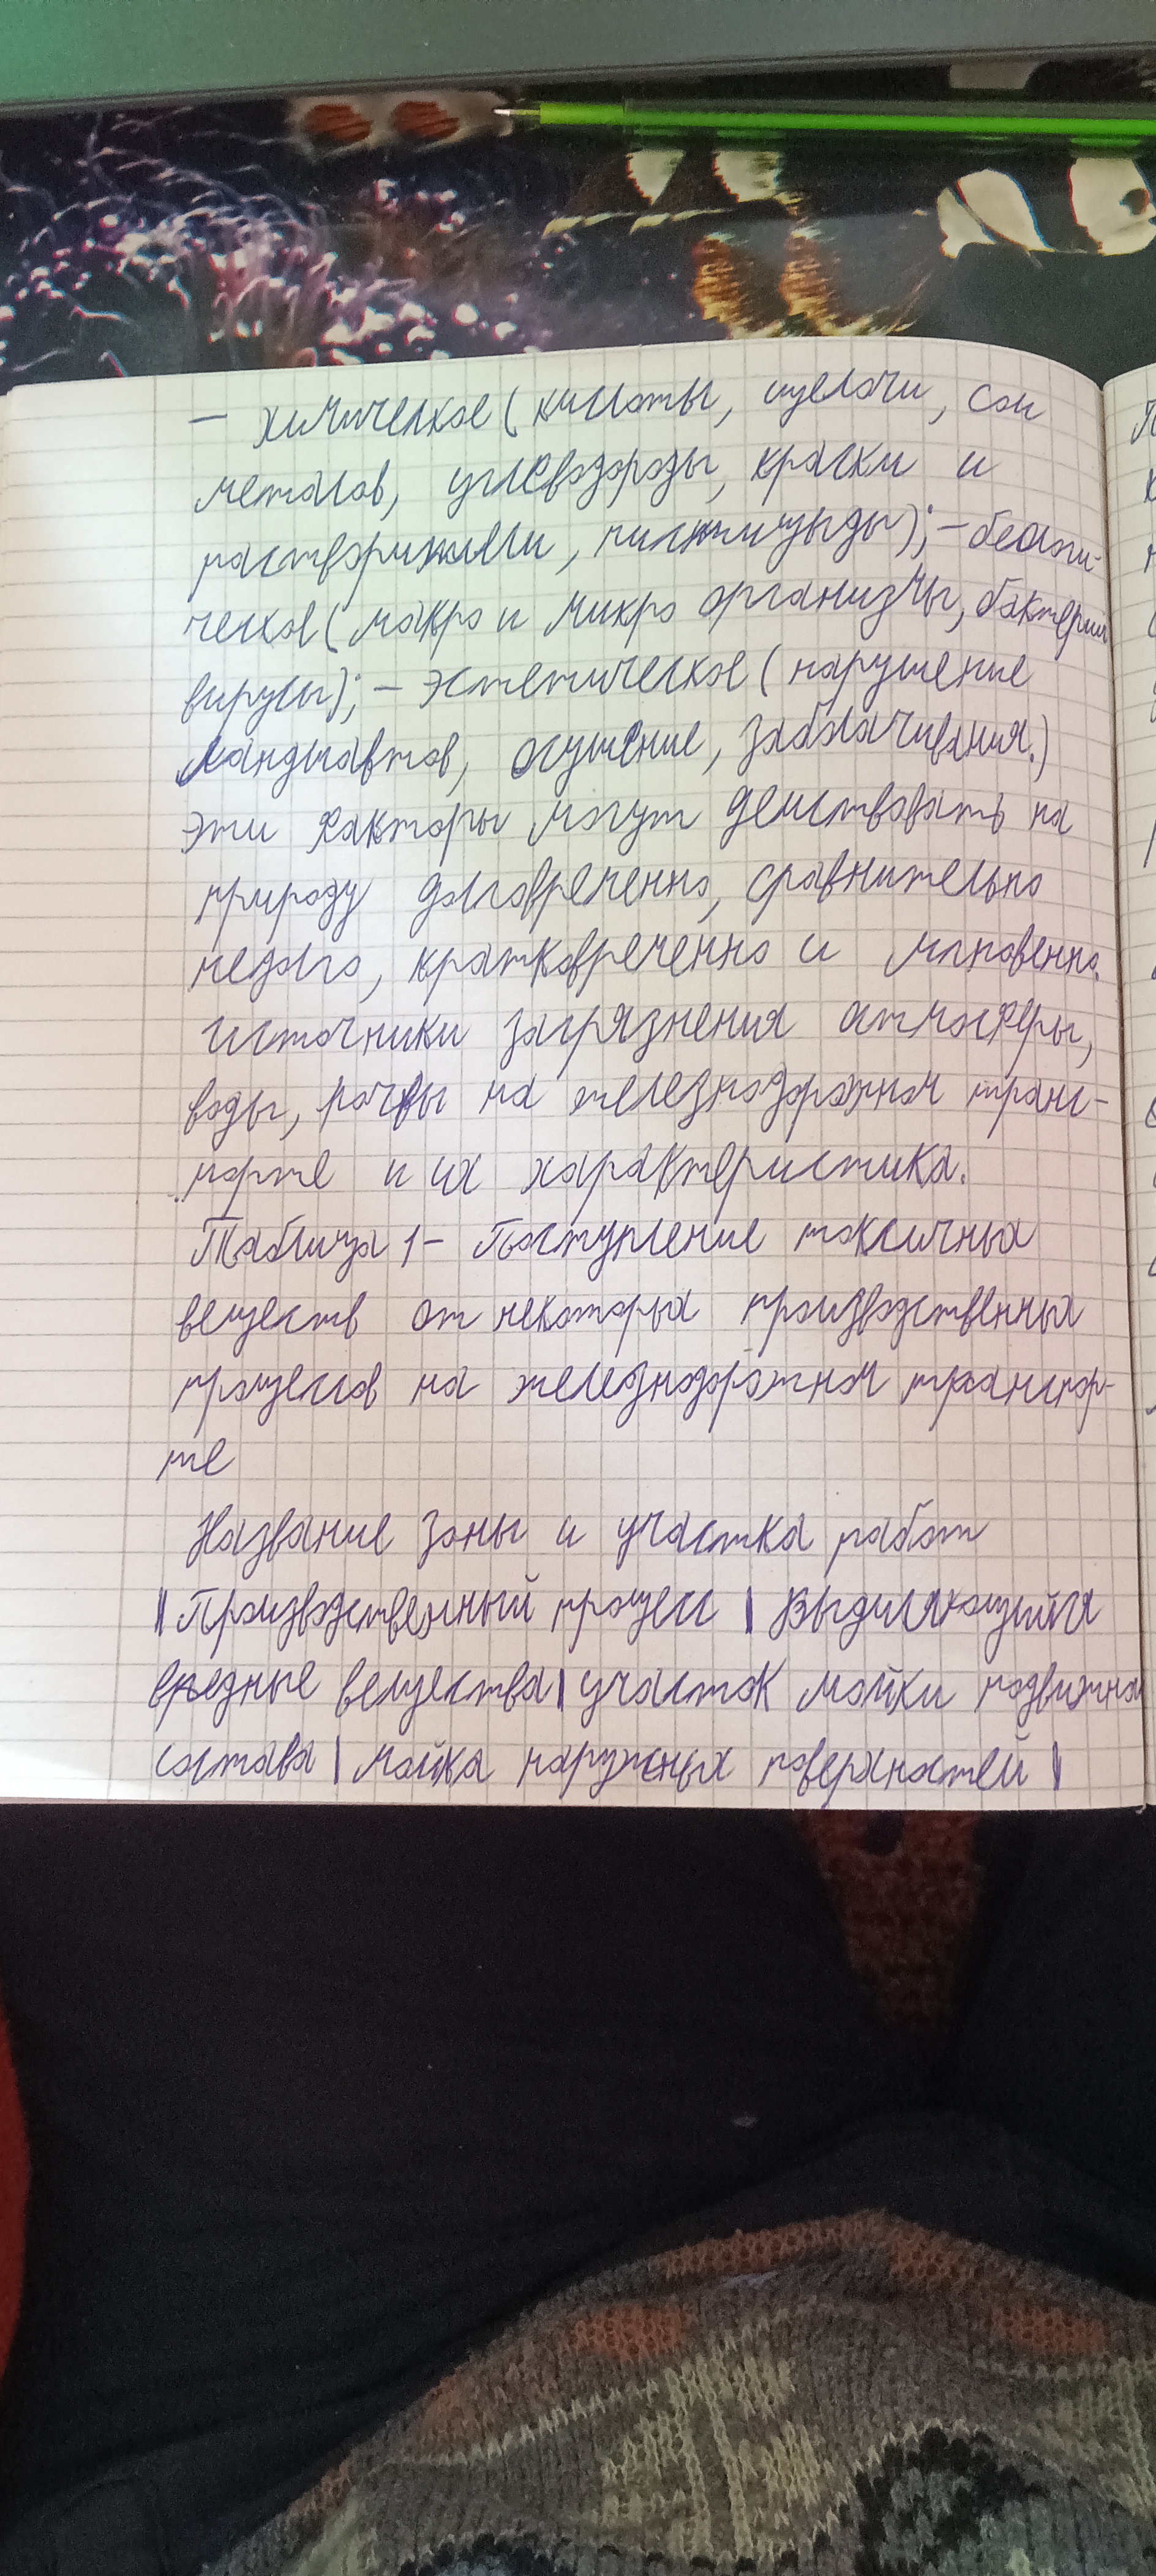 – химическое (кислоты, щелочи, соли
металов, углеводороды, краски и
растворители, пистицыды); – биологи-
ческое (макро и микро организмы, бактерии
вирусы); – эстетическое (нарушение
ландшафтов, осушение, заболачивания.)
эти факторы могут действовать на
природу долговременно, сравнительно
недолго, кратковременно и мгновенно.
Источники загрязнения атмосферы,
воды, почвы на железнодорожном транс-
порте и их характеристика.
Таблица 1 – Поступление токсичных
веществ от некоторых производственных
процессов на железнодорожном транспор-
те
Название зоны и участка работ
|| Производственный процесс | Выдиляющийся
вредные вещества | участок мойки подвижного
состава | мойка наружных поверхностей |